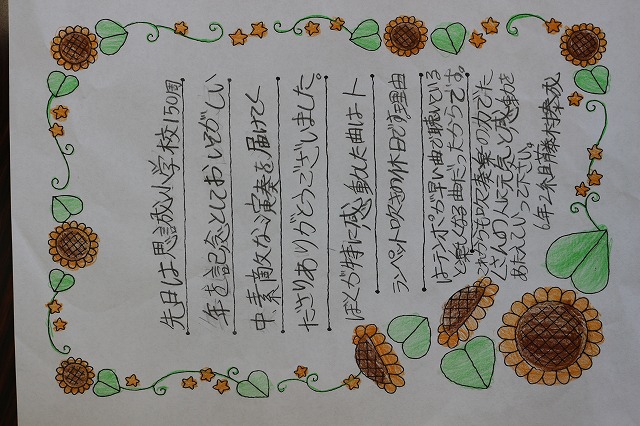 先日は思誠小学校150周
年を記念としておいそがしい
中、素敵な演奏を届けてく
ださりありがとうございました。
ぼくが特に感動した曲はト
ランペット吹きの休日です。理由
はテンポが早い曲で聴いている
と楽しくなる曲だったからです。
これからも吹奏楽の力でた
くさんの人に元気と感動を
あたえていって下さい。
6年2組